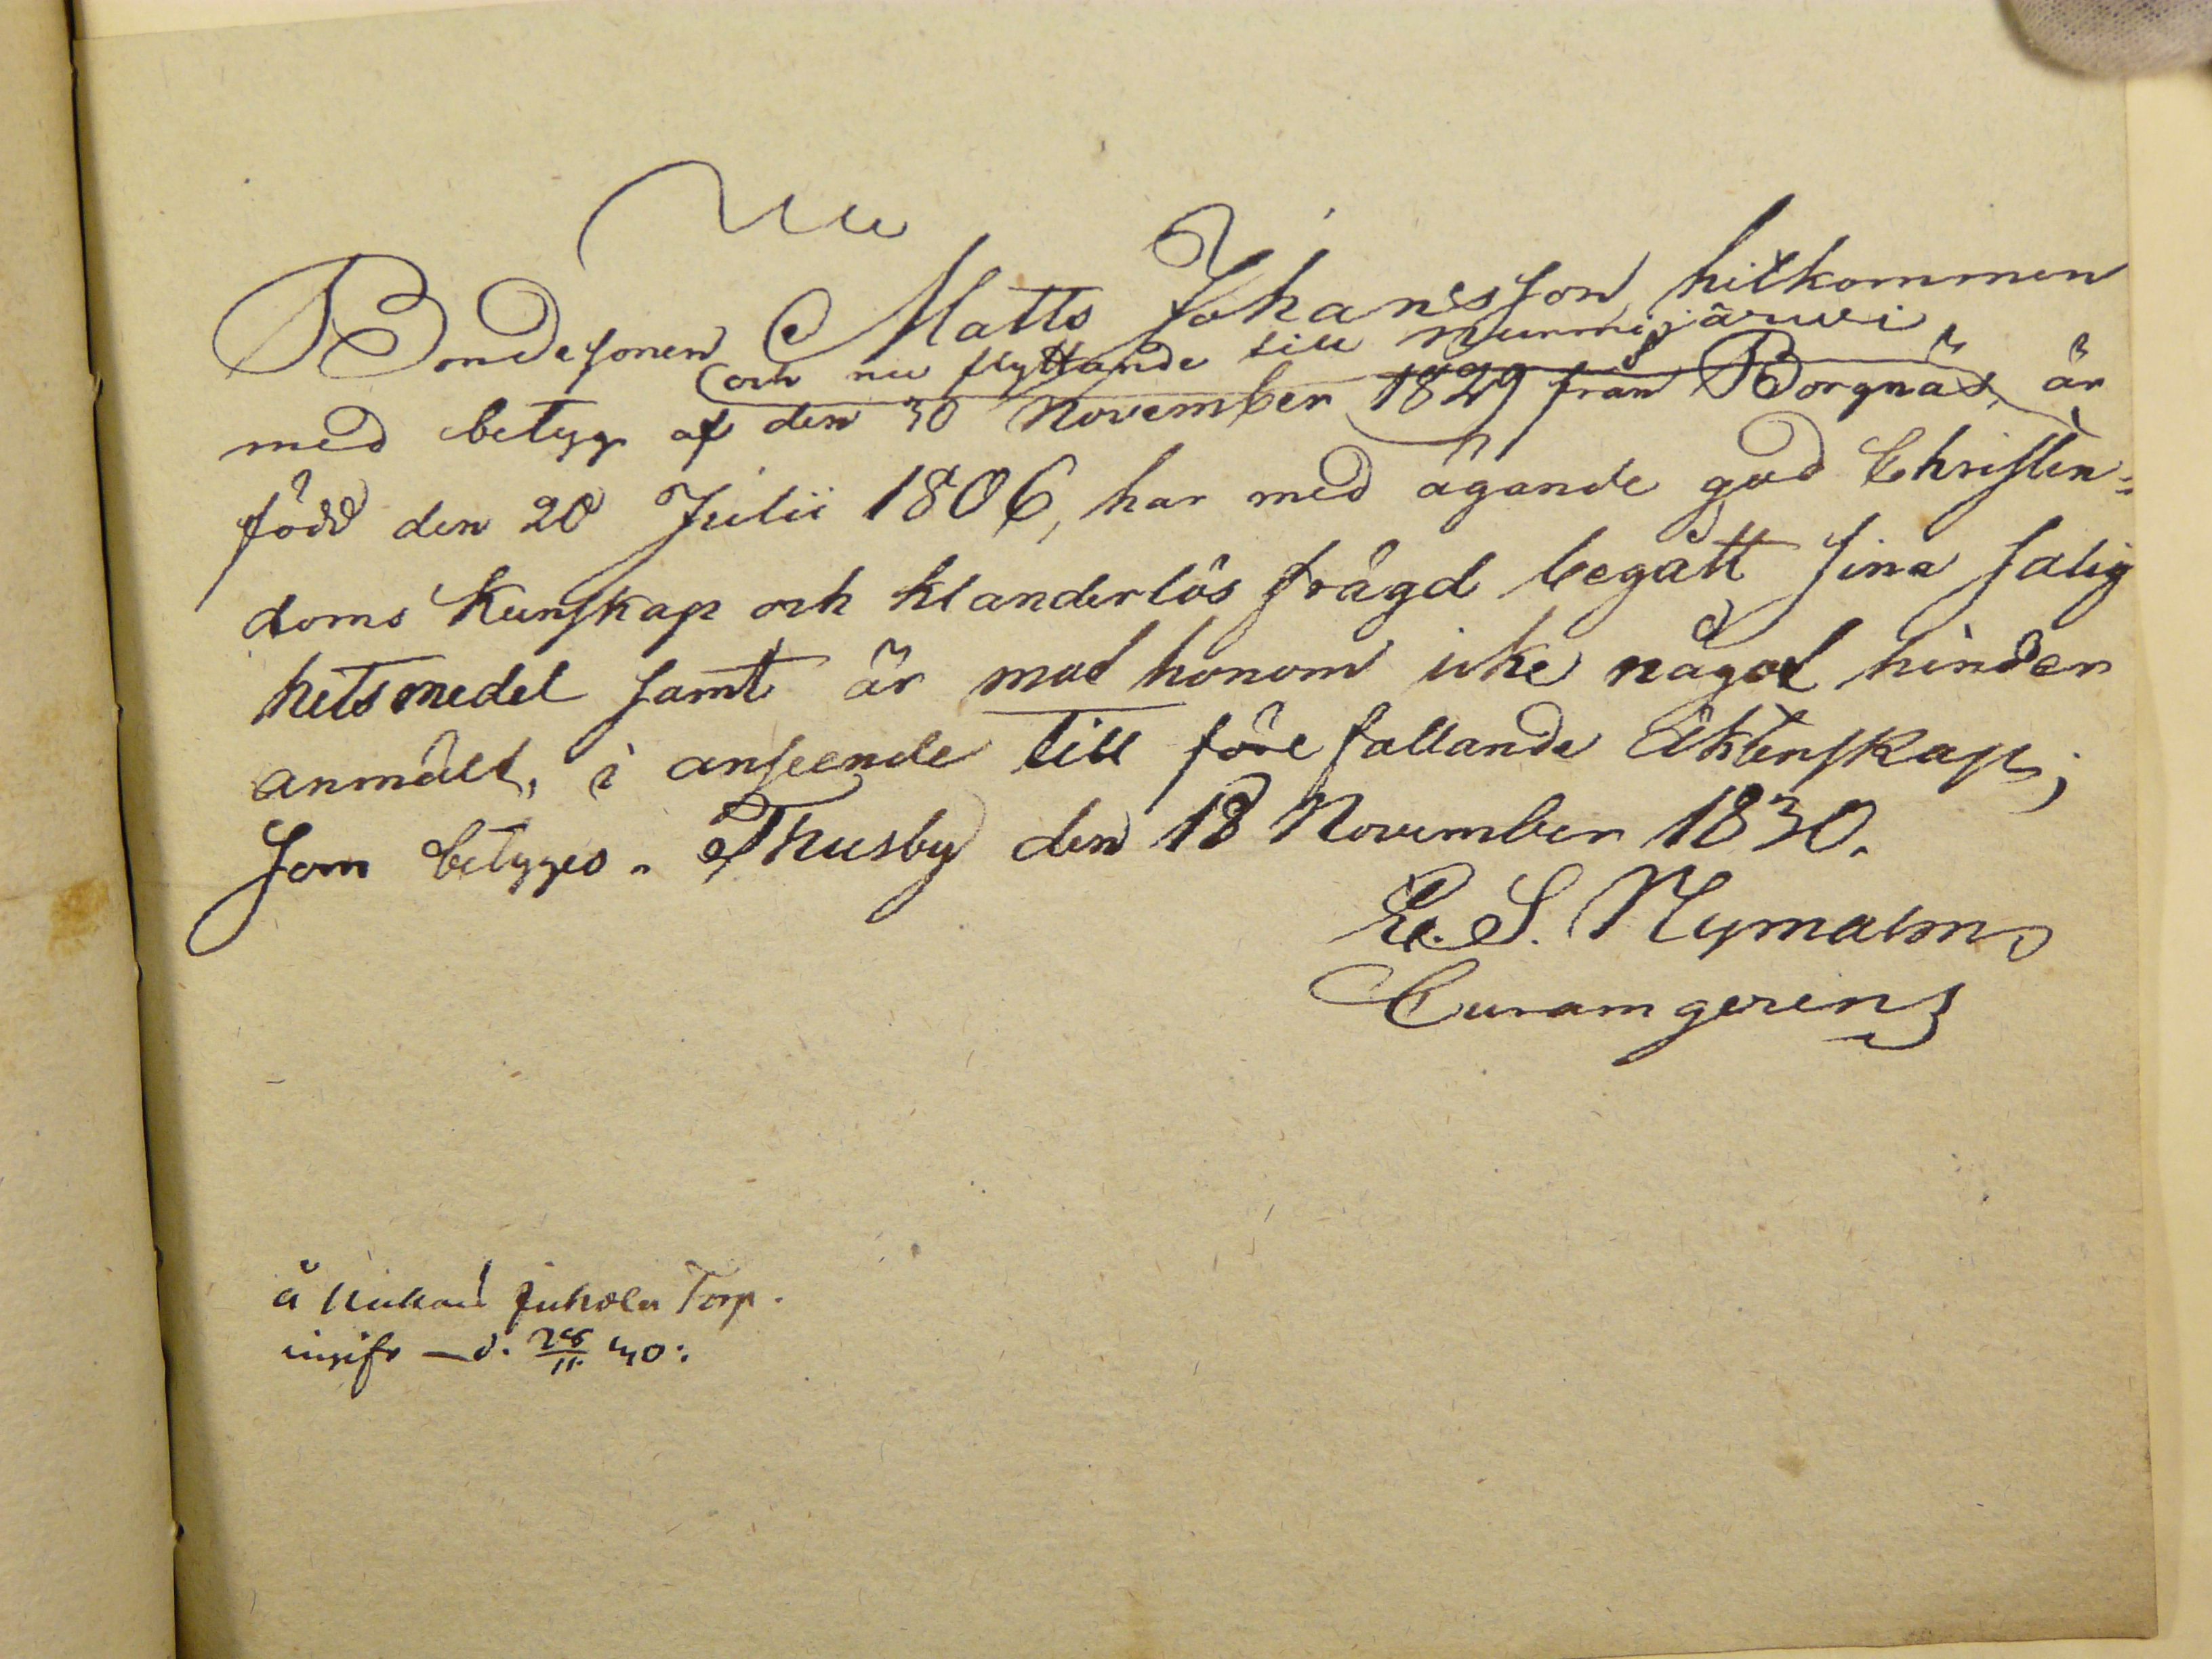 Bondesonen Matts Johansson hitkommen
och nu flyttande till Nurmijärwi
med betyg af den 30 November 1829 från Borgnäs, är
född den 20 Julii 1806, har med ägande god Christen=
doms kunskap och klanderlös frägd begått sina salig
hetsmedel samt är mot honom icke något hinder
anmält, i anseende till förefallande Äktenskap;
som betyges. Thusby den 18 November 1830.
E. S. Nymalm
Curam gerens
å Juhola Torp.
d. 28/11 30: